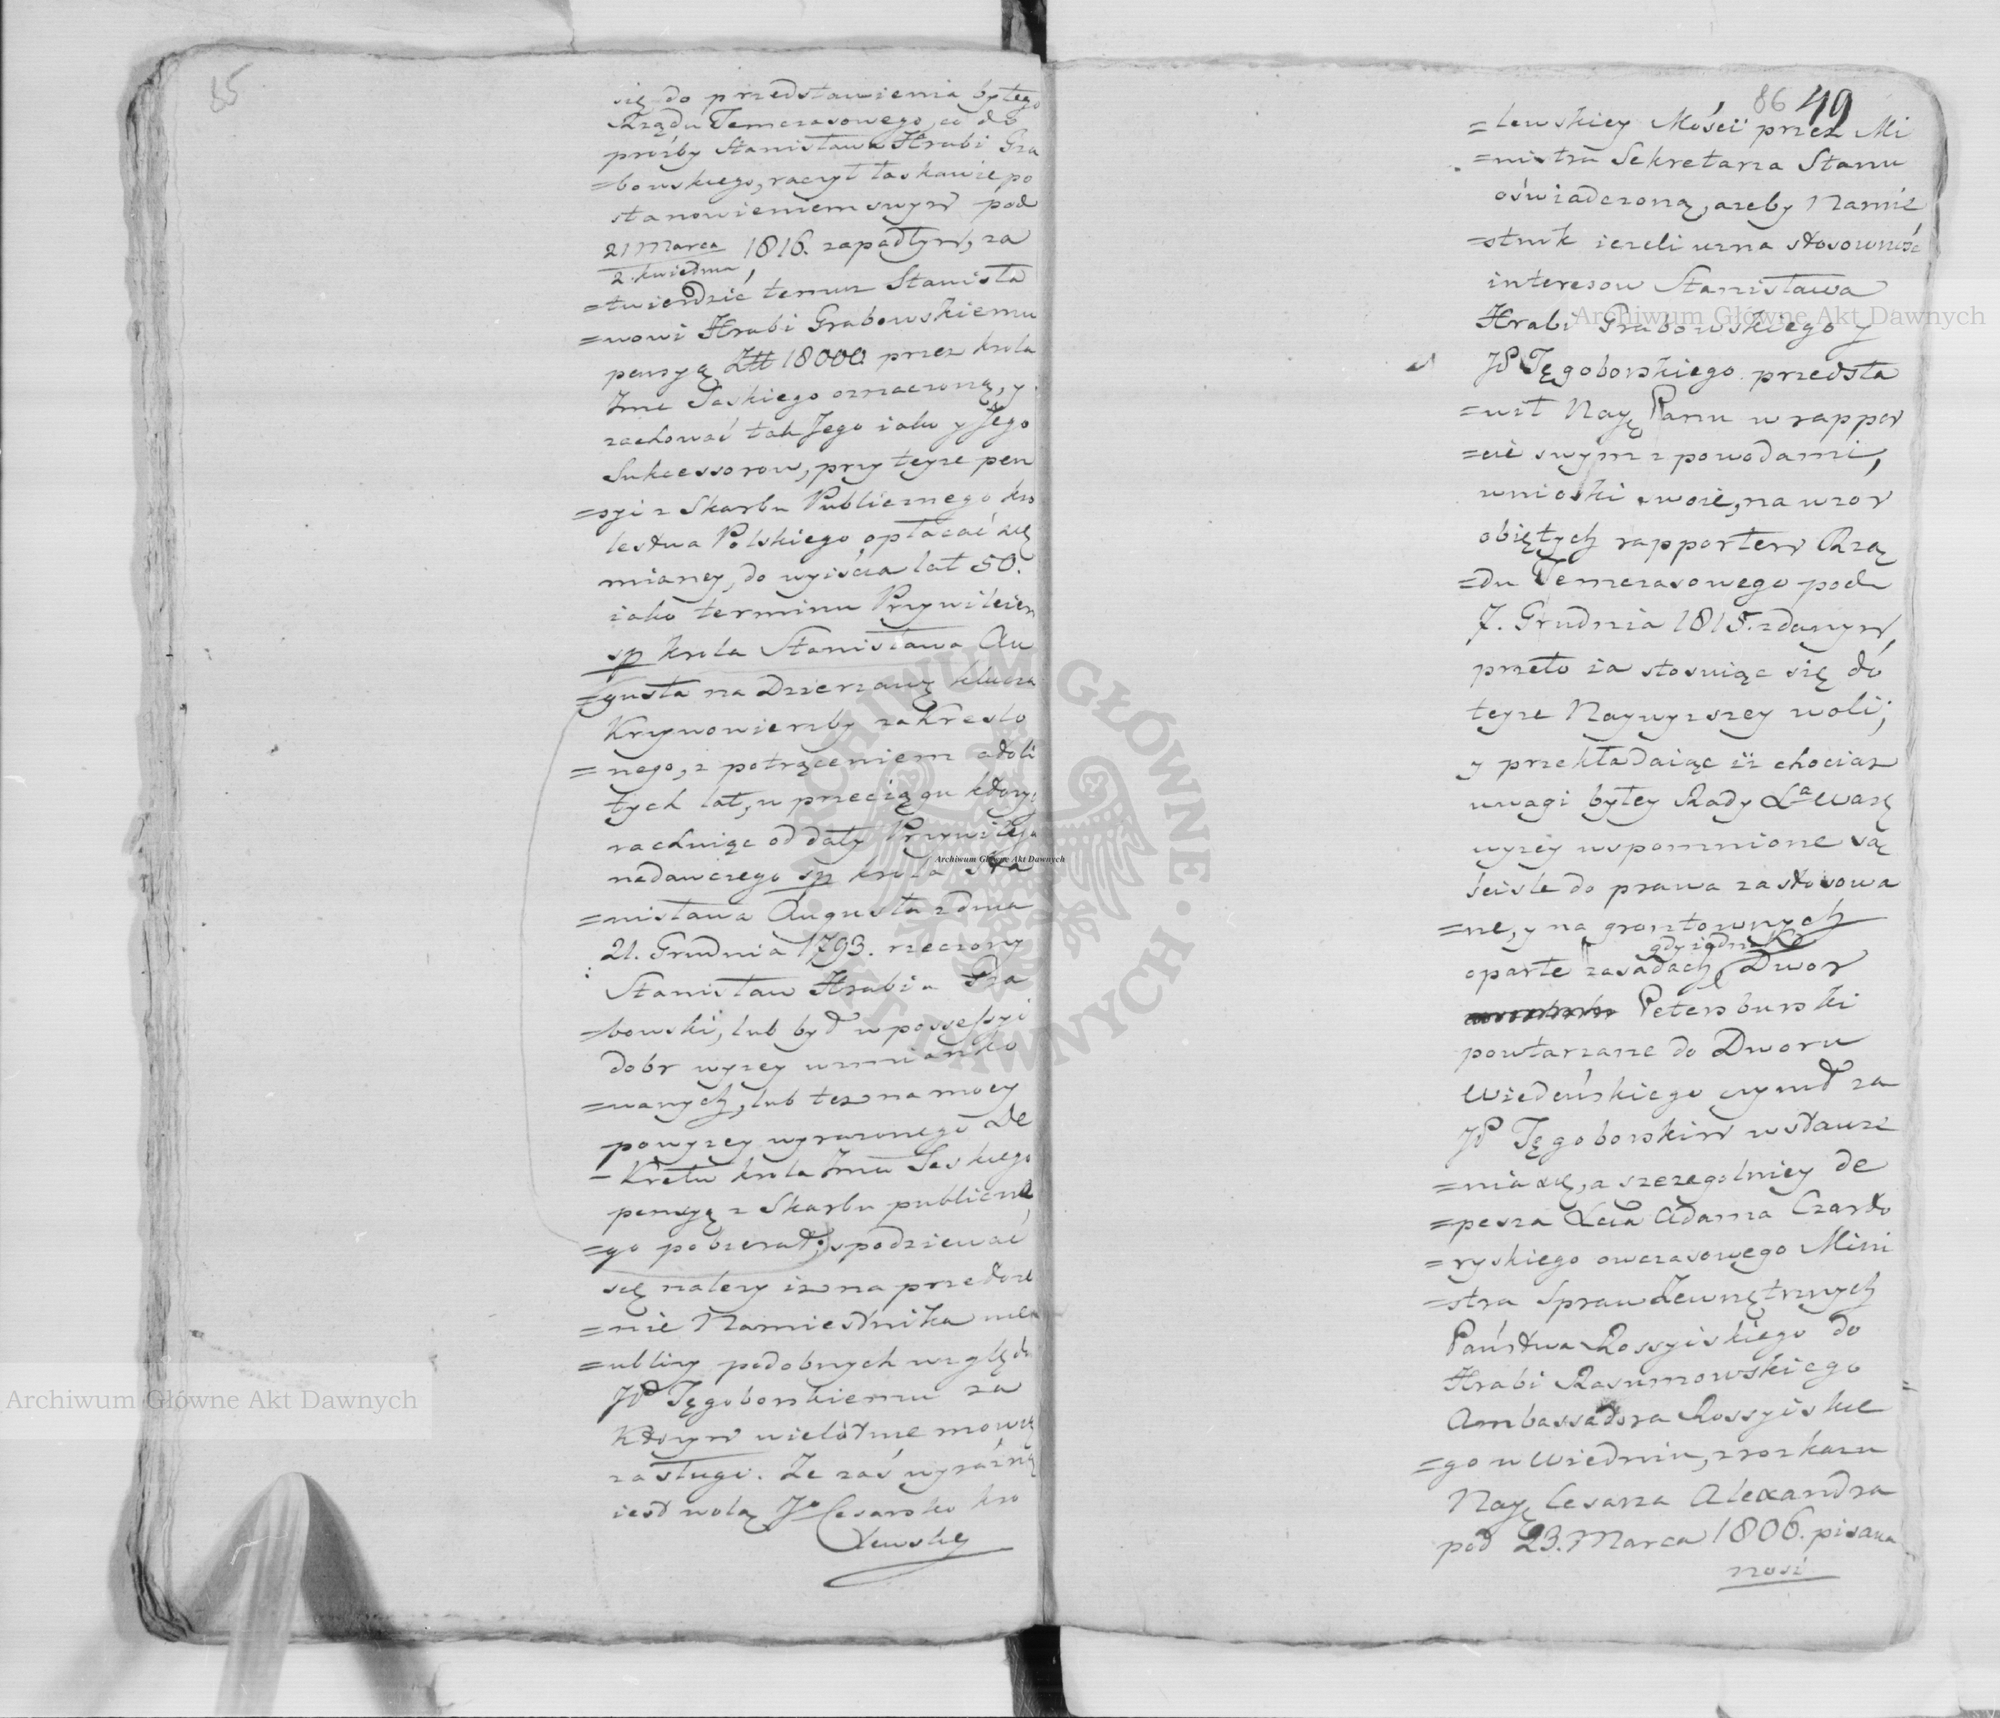 85
się do przedstawienia byłego
Rządu Temczasowego, co do
proźby Stanisława Hrabi Gra
=bowskiego, raczył łaskawie po
stanowieniem swym pod
21 Marca 1816. zapadłym, za
2. kwietnia
=twierdzić temuz Stanisła
=wowi Hrabi Grabowskiemu
pensyą Z# 18000 przez krola
Jmc Saskiego oznaczoną, y
zachować tak Jego iako y Jego
Sukcessorow, przy teyze pen
=syi z Skarbu Publicznego kro
lestwa Polskiego opłacać się
mianey, do wyiścia lat 50.
iako terminu Przywileiem
sp krola Stanisława Au
=gusta na Dzierzawę klucza
Krzynowierzby zakreslo
=nego, z potrąceniem
tych lat, w przeciągu ktorych
rachuiąc od daty Przywileju
nadawczego sp krola Sta
=nisława Augusta z dnia
21. Grudnia 1793. rzeczony
Stanisław Hrabia Gra
=bowski, lub był w possessyi
dobr wyzey wzmianko
=wanych, lub tez na mocy
powyzey wyrazonego De
=kretu krola Jmci Saskiego
pensyą z Skarbu publiczne
=go pobierał; spodziewać
się nalezy iz na przedłoze
=nie Namiestnika nie
=ubliży podobnych względow
JP Tęgoborskiemu za
ktorym wielötne mowią
zasługi. Ze zaś wyraźną
iest wolą Jo Cesarsko kro
lewskiey
86 49
=lewskiey Mości przez Mi
=nistra Sekretarza Stanu
oświadczoną, azeby Namie
=stnik iezeli uzna stosowność
interesow Stanisława
Hrabi Grabowskiego y
JP Tęgoborskiego przedsta
=wił Nayę Panu w rappor
=cie swym z powodami,
wnioski swoie, na wzor
obiętych rapportem Rzą
=du Temczasowego pod
7. Grudnia 1815. zdanym,
przeto ia stosuiąc się do
teyze Naywyzszey woli;
y przekładaiąc iż chociaz
uwagi byłey Rady
wyzey wspomnione są
ściśle do prawa zastosowa
=ne, y na grontownych
gdy iednak
oparte zasadach Dwor
Petersburski
powtarzane do Dworu
Wiedeńskiego czynił za
JP Tęgoborskim wstawie
=nia się, a szczegolniey De
=pesza Xcia Adama Czarto
=ryskiego owczasowego Mini
=stra Spraw Zewnętrznych
Państwa Rossyiskiego do
Hrabi Rasumowskiego
Ambassadora Rossyiskie
=go w Wiedniu, z rozkazu
Nayę Cesarza Alexandra
pod 23. Marca 1806. pisana
nosi
Archiwum Główne Akt Dawnych
Archiwum Główne Akt Dawnych
Archiwum Główne Akt Dawnych
ARCHIWUM GŁÓWNE · AKT DAWNYCH ·